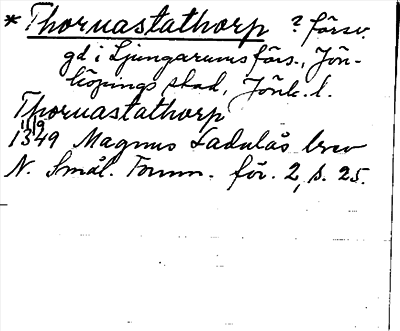 * Thornastathorp ? försv.
gd i Ljungarums förs., Jön-
köpings stad, Jönk. l.
Thornastathorp
11/9
1349 Magnus Ladulås brev
N. Smål. Fornm. för. 2, s. 25.